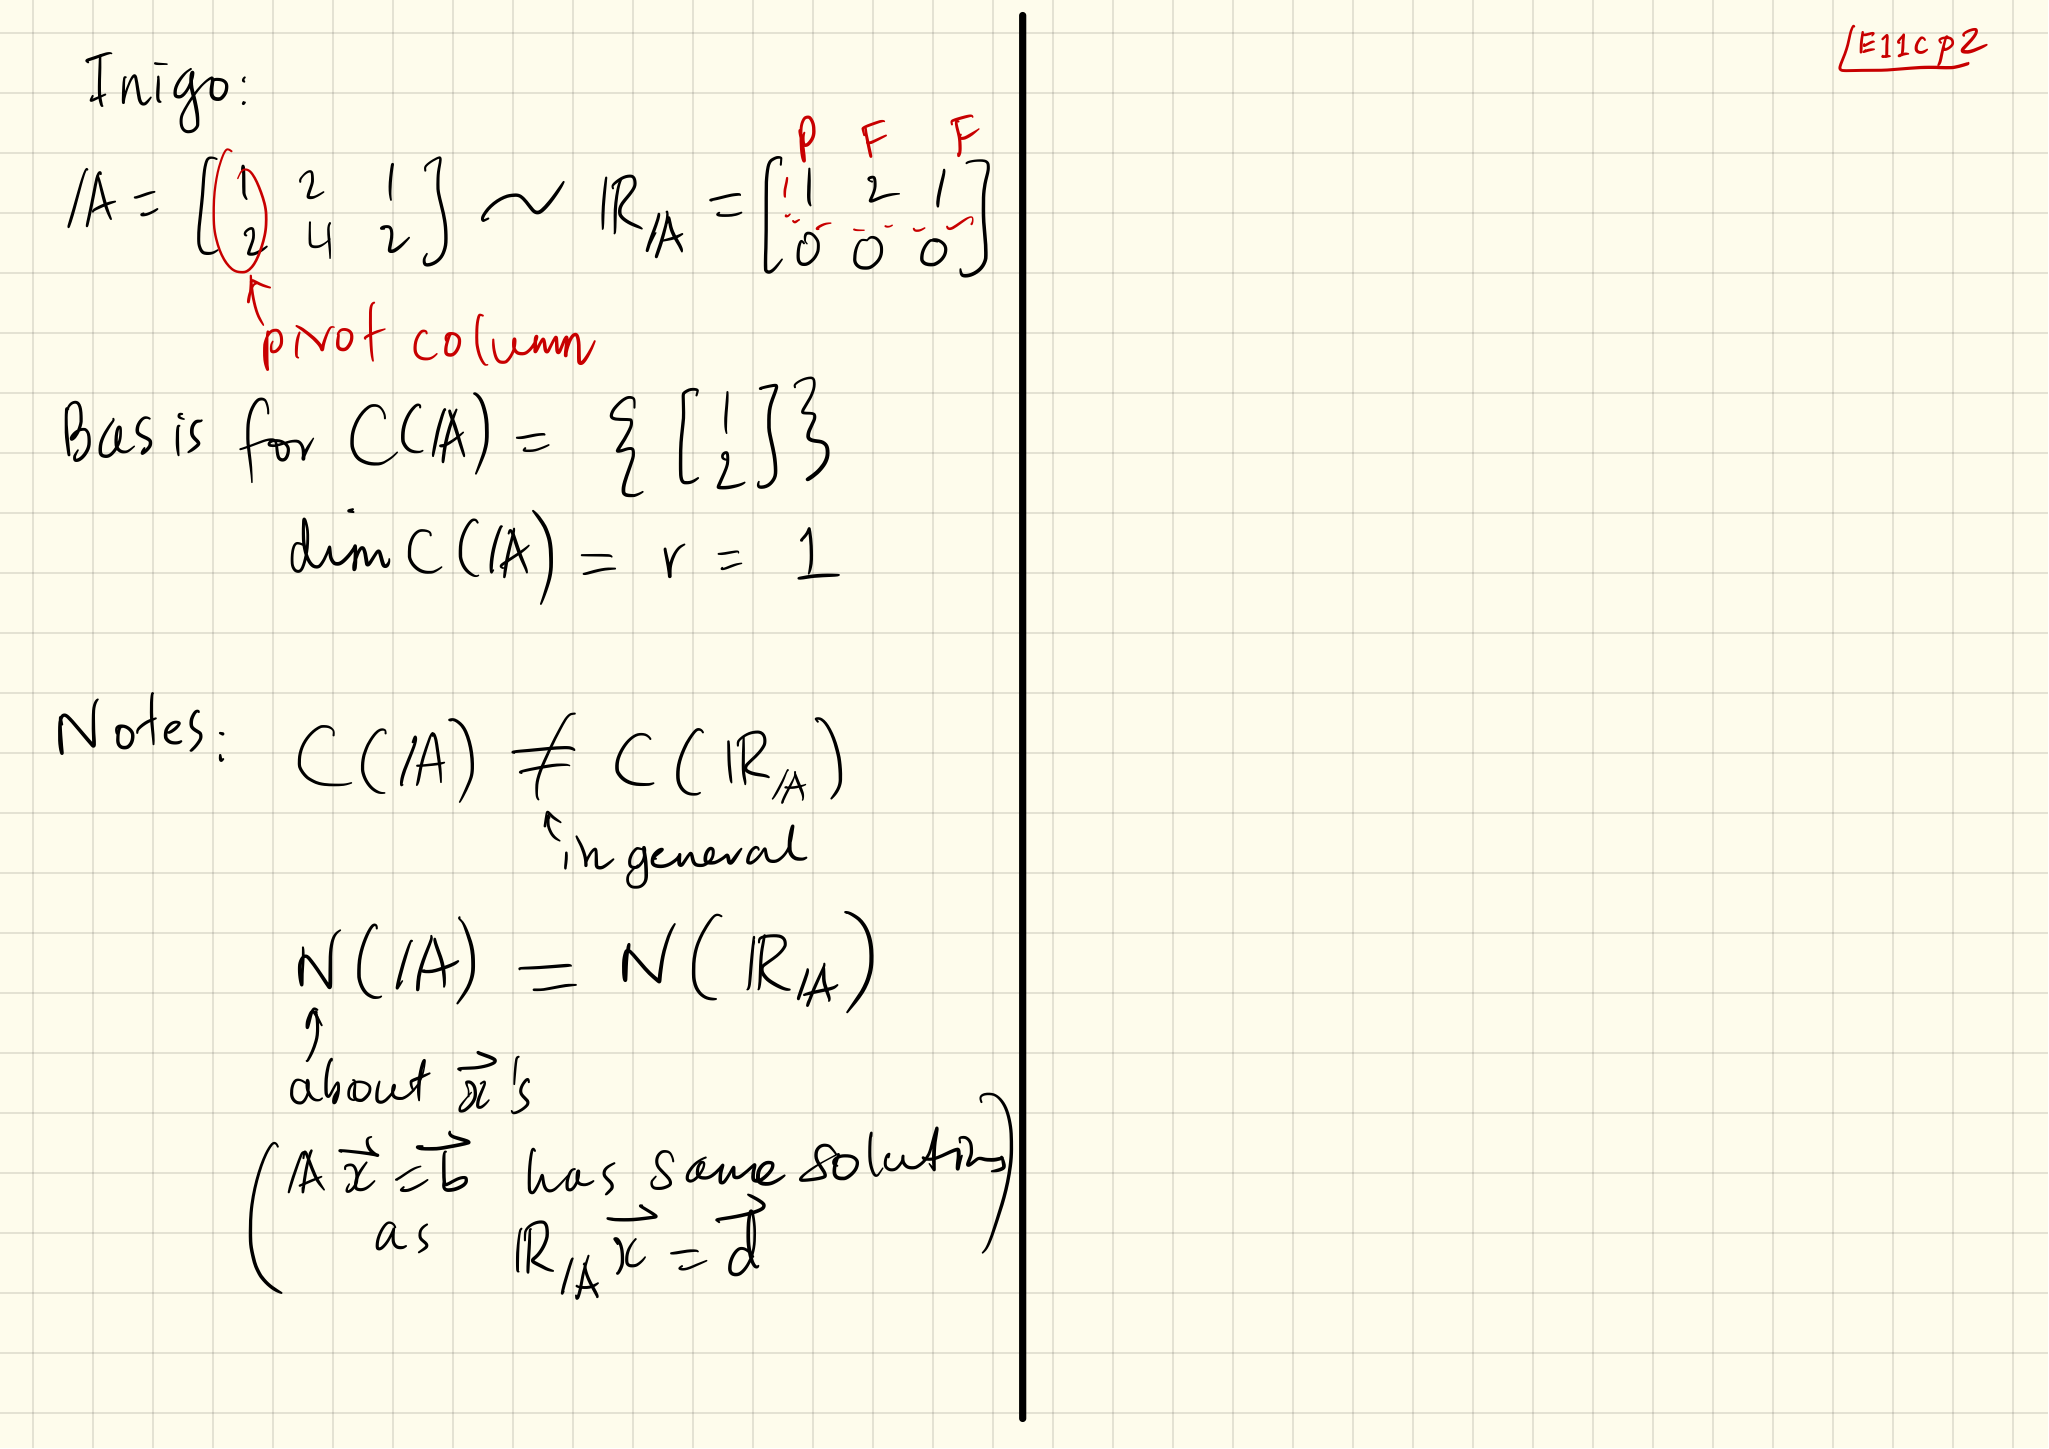 /E11cp2
Inigo:
P F F
𝔸 = [1 2 1; 2 4 2] ~ ℝ_𝔸 = [1 2 1; 0 0 0]
pivot column
Basis for C(𝔸) = { [1; 2] }
dim C(𝔸) = r = 1
Notes: C(𝔸) ≠ C(ℝ_𝔸)
in general
N(𝔸) = N(ℝ_𝔸)
about x⃗'s
(𝔸x⃗ = b⃗ has same solutions
as ℝ_𝔸 x⃗ = d⃗)